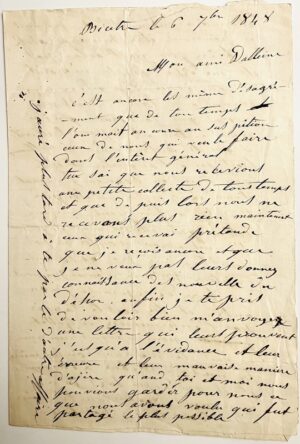 Bicêtre le 6 7bre 1848
Mon ami Dalleine
c'est encore les même désagré-
ment que de tou temps
l'on met encore au sus pition
ceux de nous qui veule faire
dans l'intérêt général
tu sai que nous recevions
une petite collecte de tous temps
et que depuis lors nous ne
recevons plus rien maintenant
ceux qui recevai prétende
que je reçois encore et que
je ne veux pas leurs donnez
connaissance des nouvelle du
dehor. enfin je te pris
de vouloir bien m'anvoyez
une lettre qui leurs prouvent
j'usqu'à l'évidance et leur
érreure et leur mauvaise maniere
d'ajire qu'and toi et moi nous
pouvions garder pour nous ce
que nous avons voulu qui fut
partagé le plus possible
j'aurai plus tard à te parlé d'autre affaire